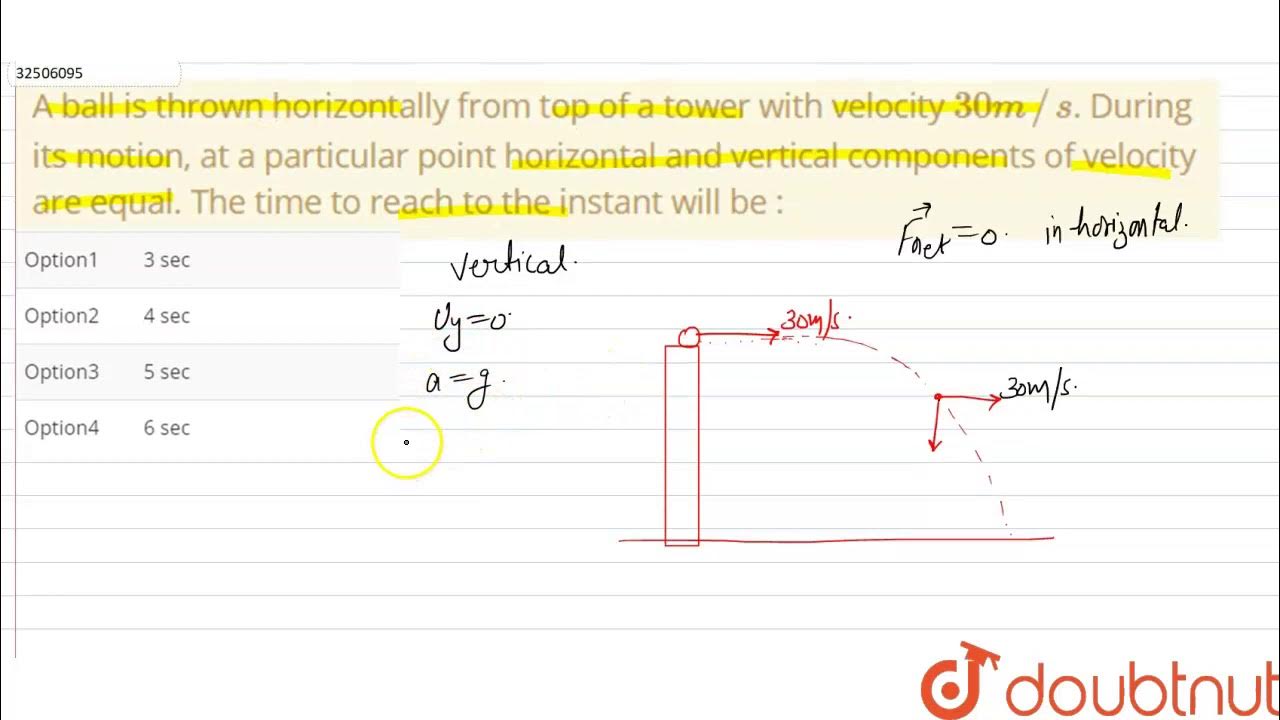 32506095
A ball is thrown horizontally from top of a tower with velocity 30m/s. During
its motion, at a particular point horizontal and vertical components of velocity
are equal. The time to reach to the instant will be :
Option1 3 sec
Option2 4 sec
Option3 5 sec
Option4 6 sec
vertical.
Uy=0.
a=g.
Fnet=0. in horizontal.
30m/s.
30m/s.
doubtnut